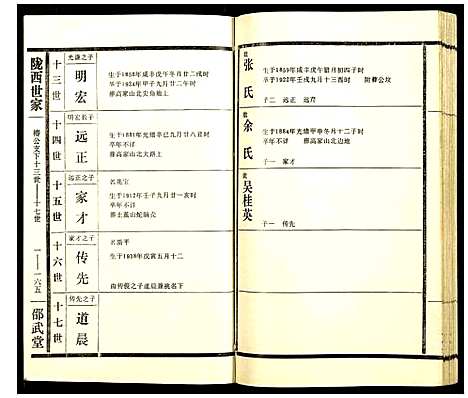 陇西世家
椿公支下十三世——十七世
一——一六五
邵武堂
十三世
光谦之子
明宏
生于1858年咸丰戊午冬月廿二戌时
卒于1924年甲子九月廿二午时
葬高家山北尖角地上
配
张氏
生于1859年咸丰戊午腊月初四子时
卒于1922年壬戌九月十三酉时 附葬公坟
子二 远正 远芹
十四世
明宏长子
远正
生于1881年光绪辛巳九月廿八丑时
卒年不详
葬高家山北大路上
配
余氏
生于1884年光绪甲申冬月十二子时
卒年不详 葬高家山北边地
子一 家才
十五世
远正之子
家才
名兆宝
生于1912年壬子九月廿一亥时
卒年不详
葬土孤山蛇脑壳
配
吴桂英
子一 传先
十六世
家才之子
传先
名昌平
生于1938年戊寅五月十二
由传俊之子道晨兼祧名下
十七世
传先之子
道晨